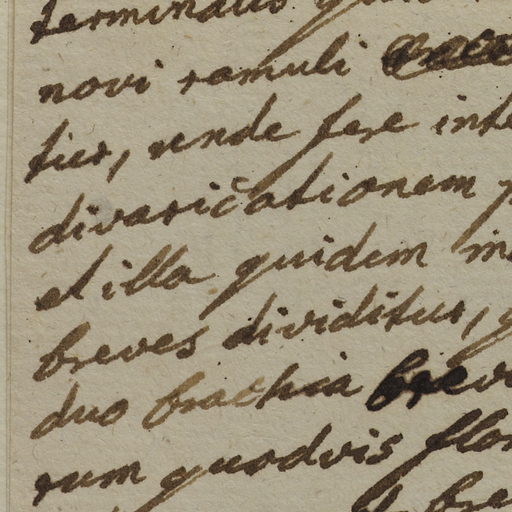 terminatis
novi ramuli
tur, unde fere inte
divaricationem p
et illa quidem in
breves dividitur, q
duo brachia brevi
rum quodvis flor
bre